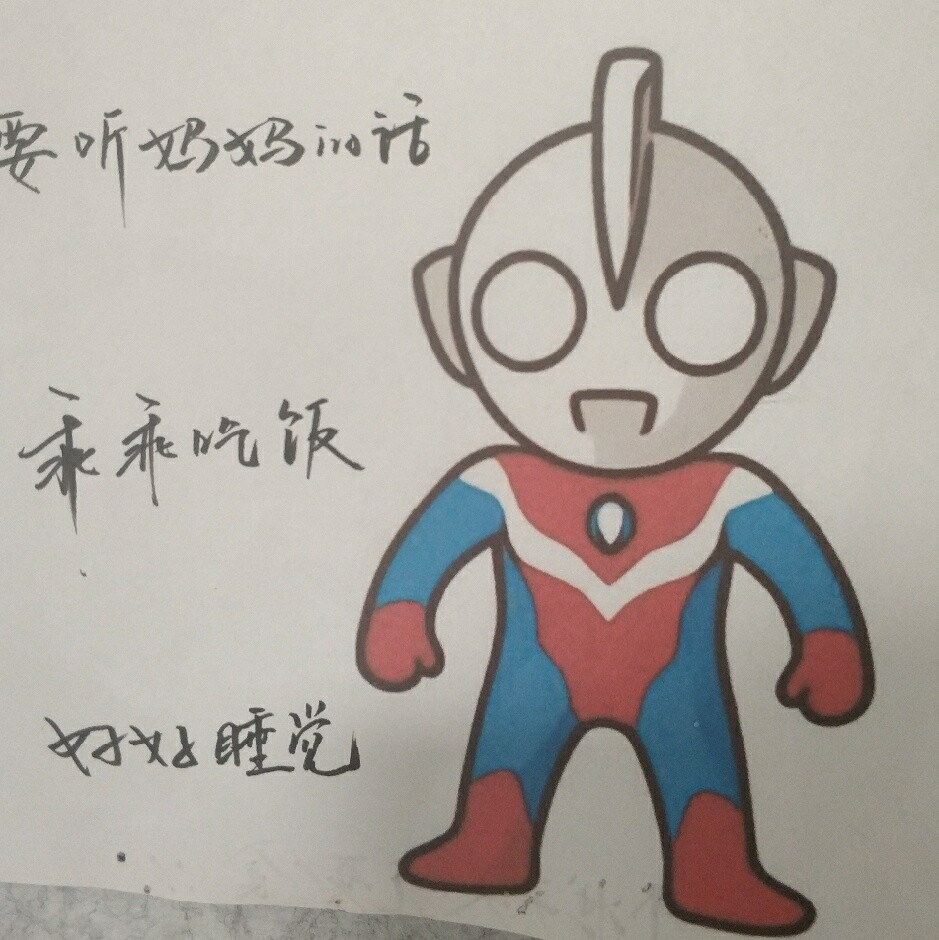 要听妈妈的话
乖乖吃饭
好好睡觉